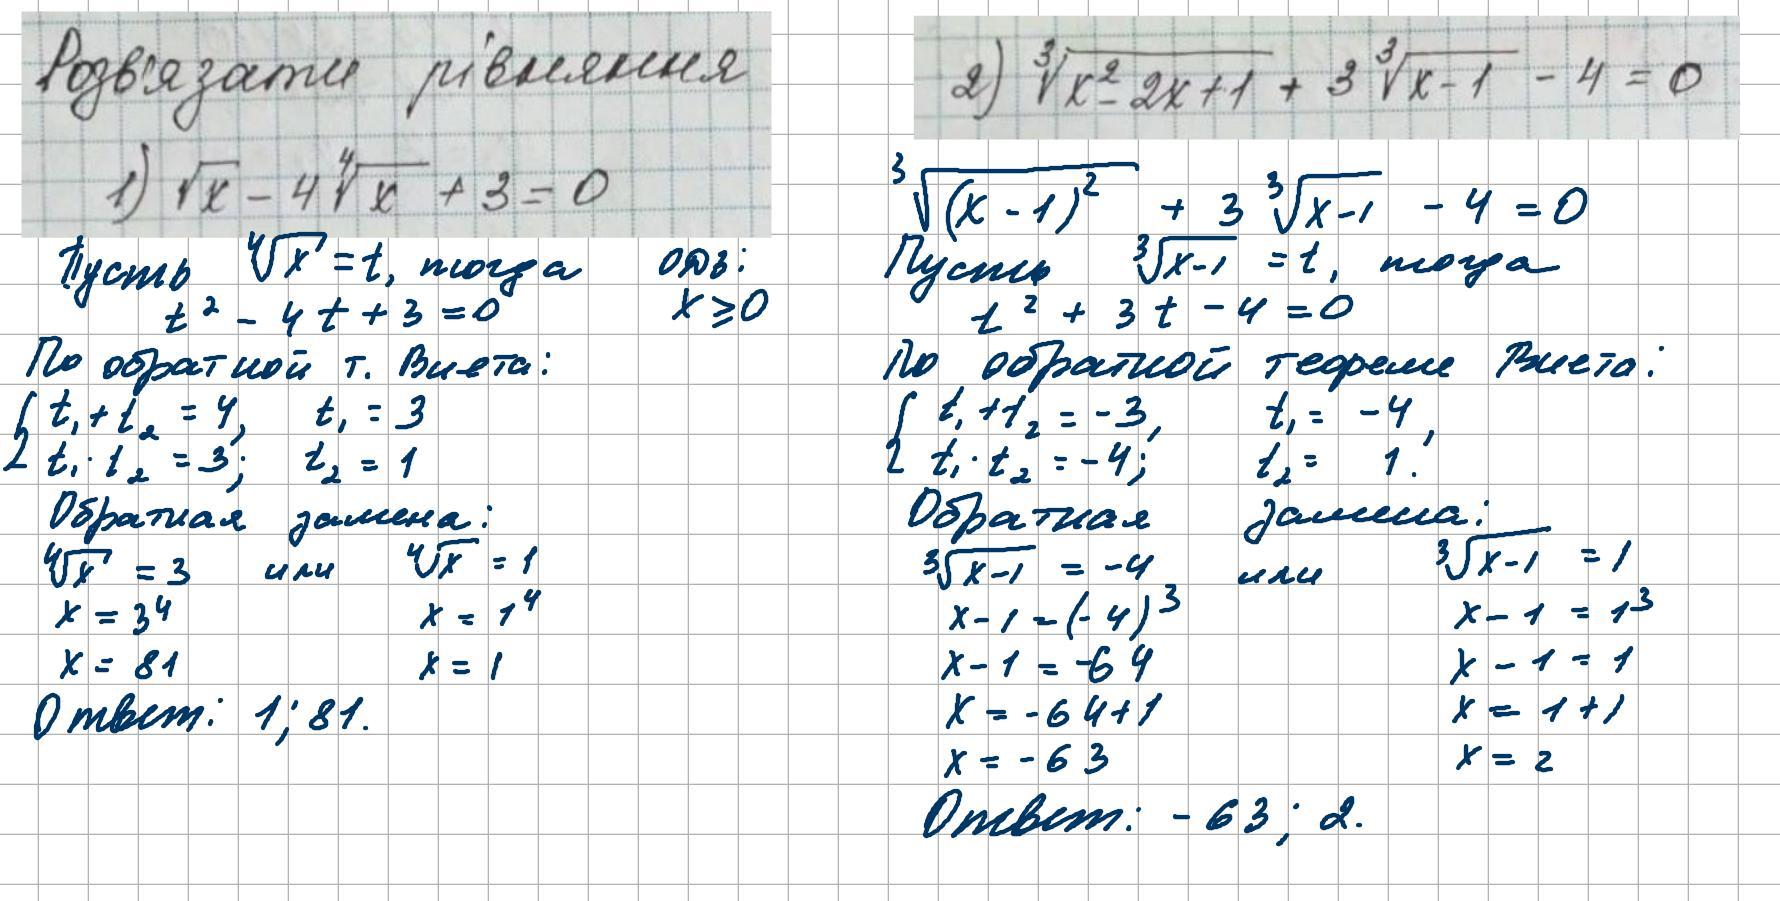 Розв'язати рівняння
1) √x - 4∜x + 3 = 0
Пусть ∜x = t, тогда ОДЗ:
t² - 4t + 3 = 0 x ≥ 0
По обратной т. Виета:
{ t₁ + t₂ = 4, t₁ = 3
t₁ · t₂ = 3; t₂ = 1
Обратная замена:
∜x = 3 или ∜x = 1
x = 3⁴ x = 1⁴
x = 81 x = 1
Ответ: 1; 81.
2) ∛(x² - 2x + 1) + 3∛(x - 1) - 4 = 0
∛((x - 1)²) + 3∛(x - 1) - 4 = 0
Пусть ∛(x - 1) = t, тогда
t² + 3t - 4 = 0
По обратной теореме Виета:
{ t₁ + t₂ = -3, t₁ = -4,
t₁ · t₂ = -4; t₂ = 1.
Обратная замена:
∛(x - 1) = -4 или ∛(x - 1) = 1
x - 1 = (-4)³ x - 1 = 1³
x - 1 = -64 x - 1 = 1
x = -64 + 1 x = 1 + 1
x = -63 x = 2
Ответ: -63; 2.